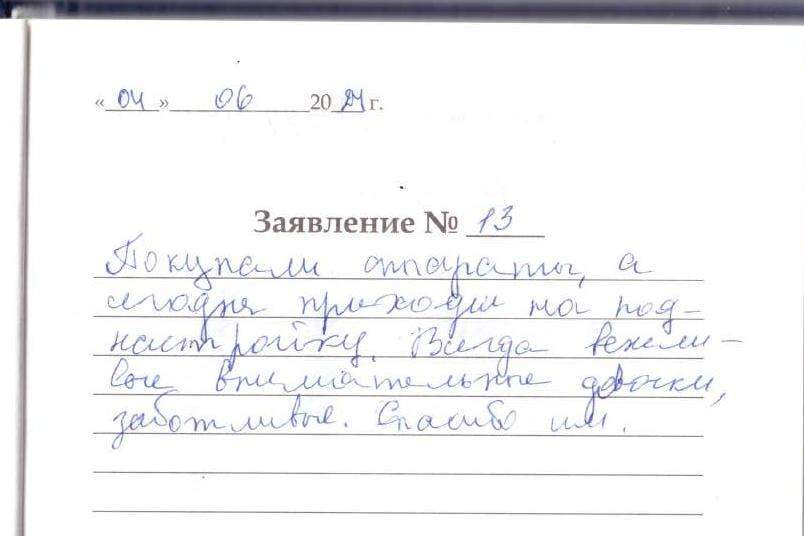 « 04 » 06 2024 г.
Заявление № 13
Покупали аппараты, а
сегодня приходили на под-
настройку. Всегда вежли-
вые внимательные девочки,
заботливые. Спасибо им.